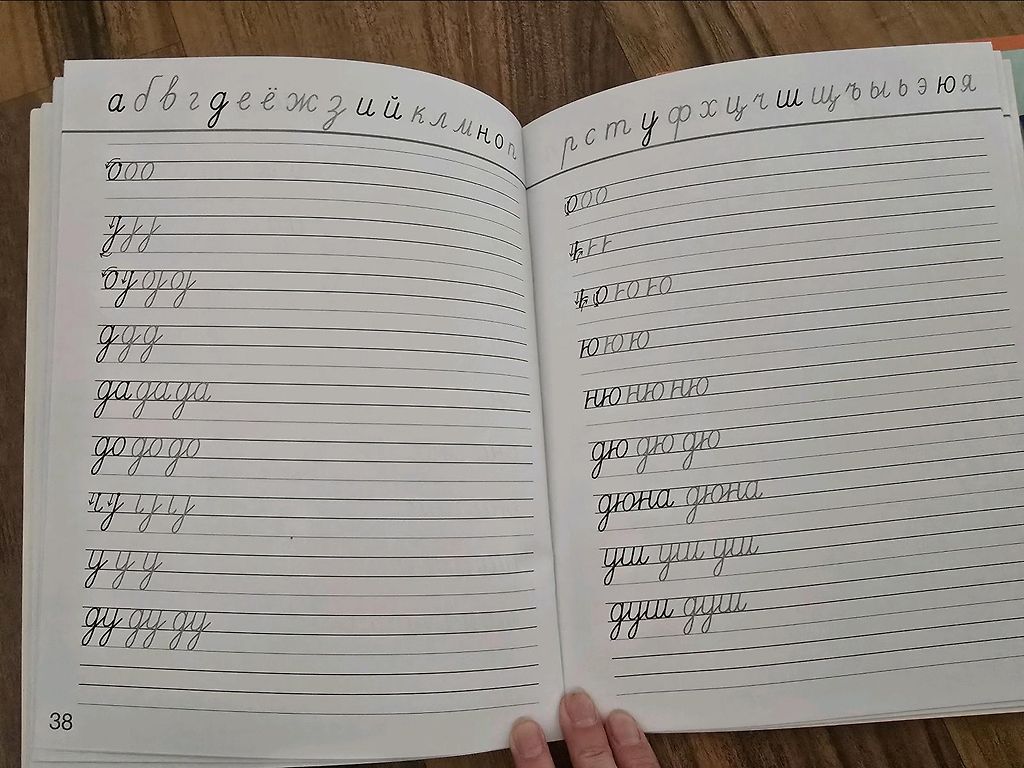 а б в г д е ё ж з и й к л м н о п
о о о
о
д д д
да да да
до до до
у у у
ду ду ду
38
р с т у ф х ц ч ш щ ъ ы ь э ю я
о о о
ю ю ю
ню ню ню
дю дю дю
дюна дюна
уш уш уш
душ душ